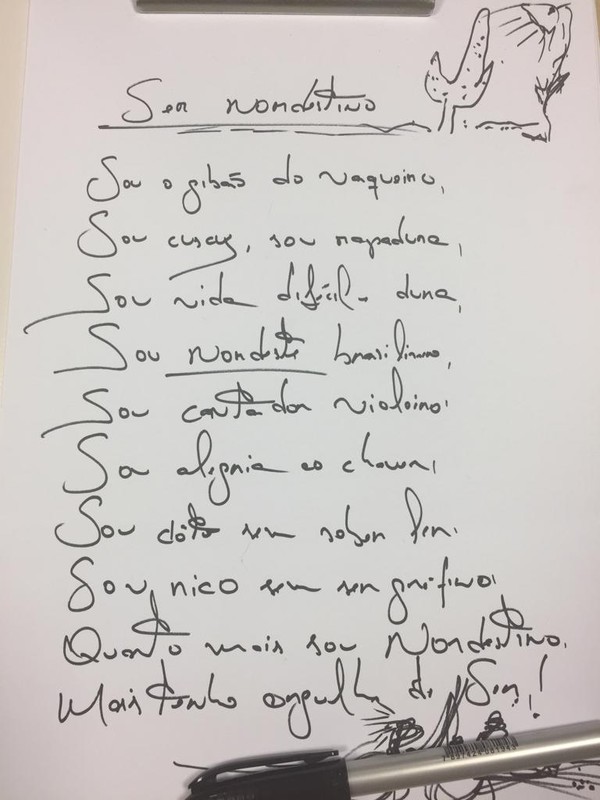 Ser nordestino
Sou o gibão do vaqueiro,
Sou cuscuz, sou rapadura,
Sou vida difícil e dura,
Sou Nordeste brasileiro,
Sou cantador violeiro.
Sou alegria ao chover,
Sou dôto sem saber ler.
Sou rico sem ser grãfino.
Quanto mais sou Nordestino.
Mais tenho orgulho de Ser!